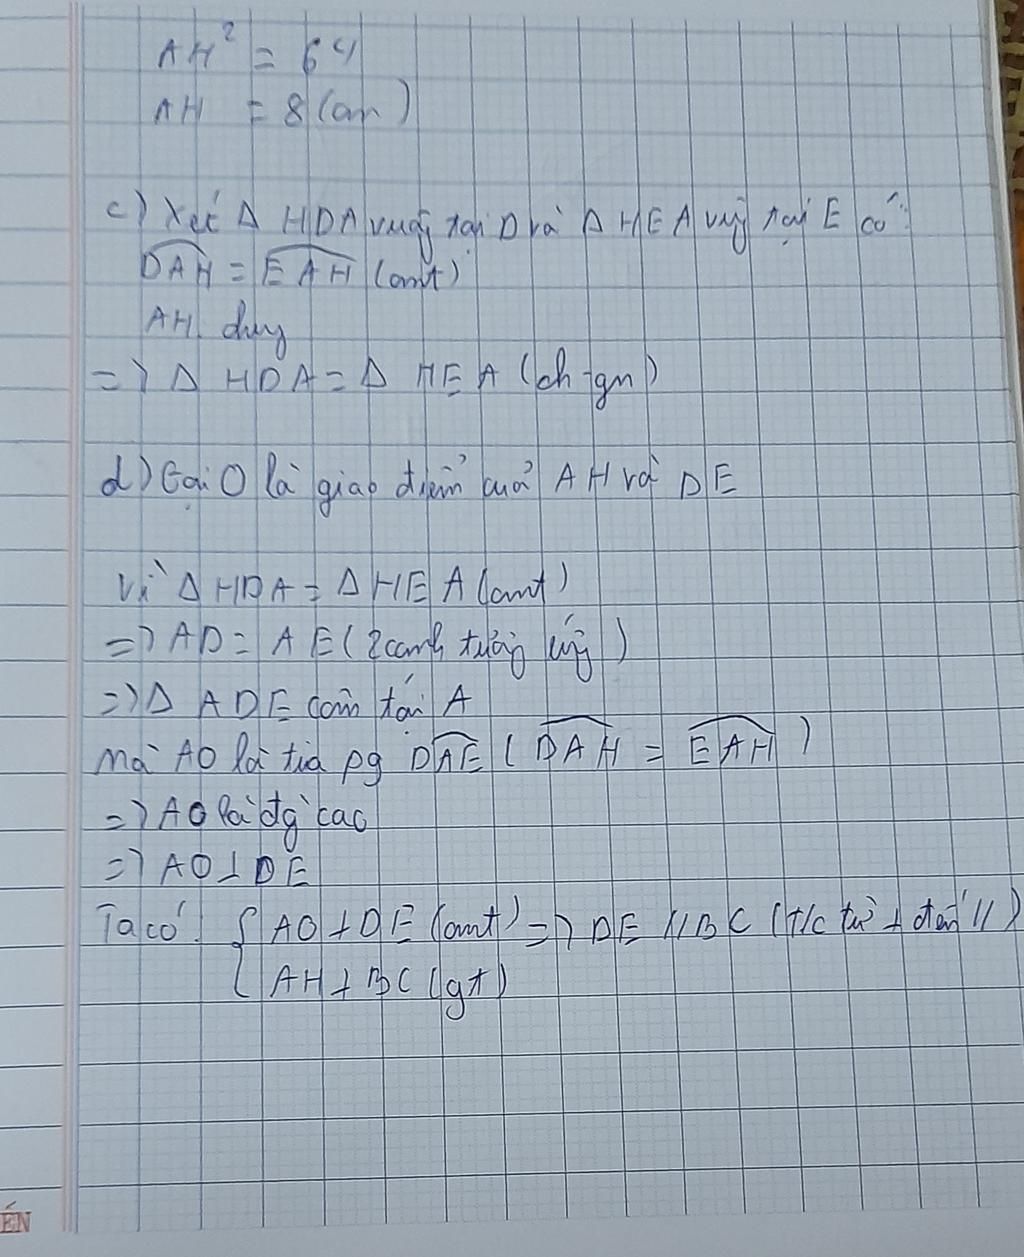 AH² = 64
AH = 8 (cm)
c) Xét Δ HDA vuông tại D và Δ HEA vug tại E có:
DAH = EAH (cmt)
AH chug
=> Δ HDA = Δ HEA (ch-gn)
d) Gọi O là giao điểm của AH và DE
Vì Δ HDA = Δ HEA (cmt)
=> AD = AE (2 cạnh tương ứng)
=> Δ ADE cân tại A
Mà AO là tia pg DAE (DAH = EAH)
=> AO là đg cao
=> AO ⊥ DE
Ta có: { AO ⊥ DE (cmt) => DE // BC (t/c từ ⊥ đến //)
AH ⊥ BC (gt)
ÉN